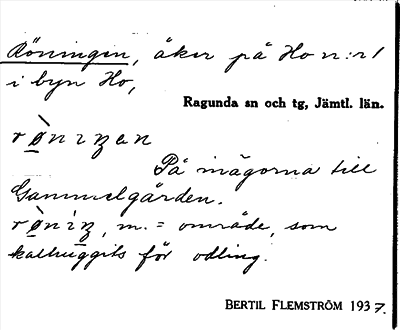 Röningen, åker på Ho n:r 1
i byn Ho,
Ragunda sn och tg, Jämtl. län.
rø̀niŋen
På inägorna till
Gammelgården.
rø̀nìŋ, m. = område, som
kalhuggits för odling.
BERTIL FLEMSTRÖM 1937.